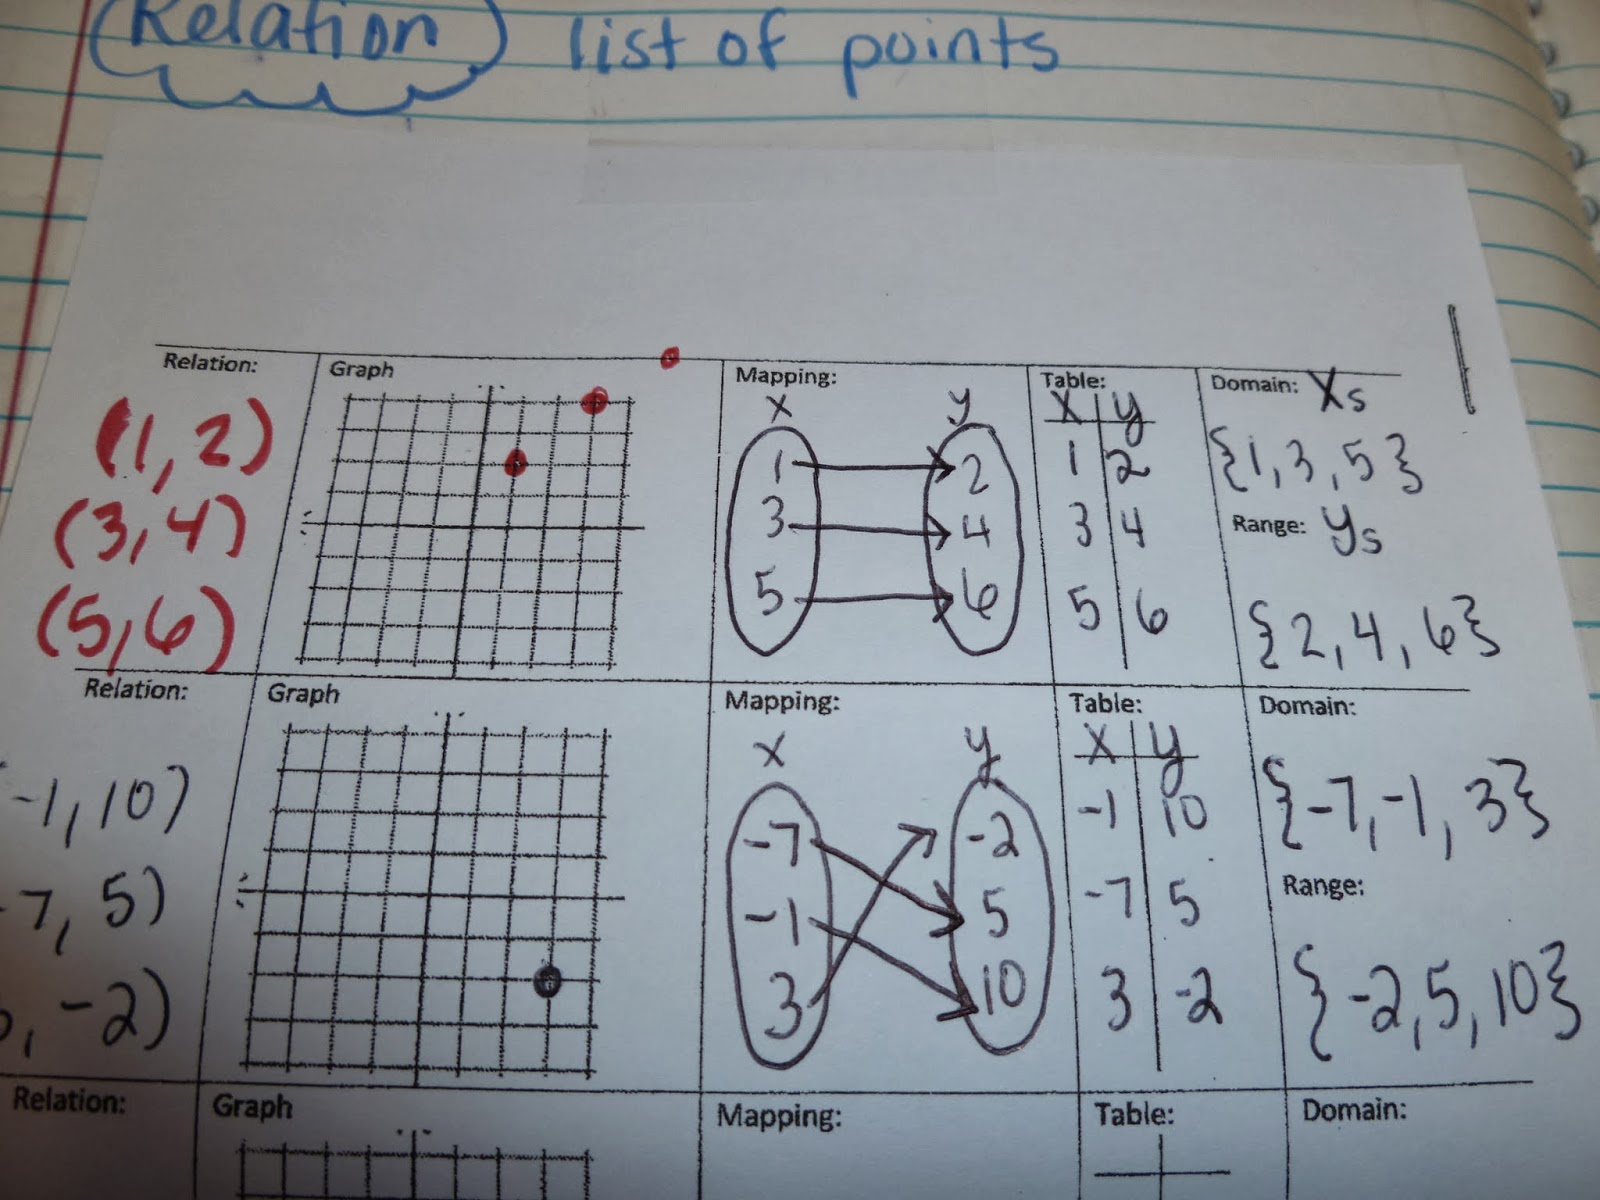 Relation list of points
Relation: Graph Mapping: Table: Domain: Xs
x y x y
(1, 2) 1 2 1 2 {1, 3, 5}
(3, 4) 3 4 3 4 Range: ys
(5, 6) 5 6 5 6 {2, 4, 6}
Relation: Graph Mapping: Table: Domain:
x y x y
-1, 10) -7 -2 -1 10 {-7, -1, 3}
7, 5) -1 5 -7 5 Range:
, -2) 3 10 3 -2 {-2, 5, 10}
Relation: Graph Mapping: Table: Domain: